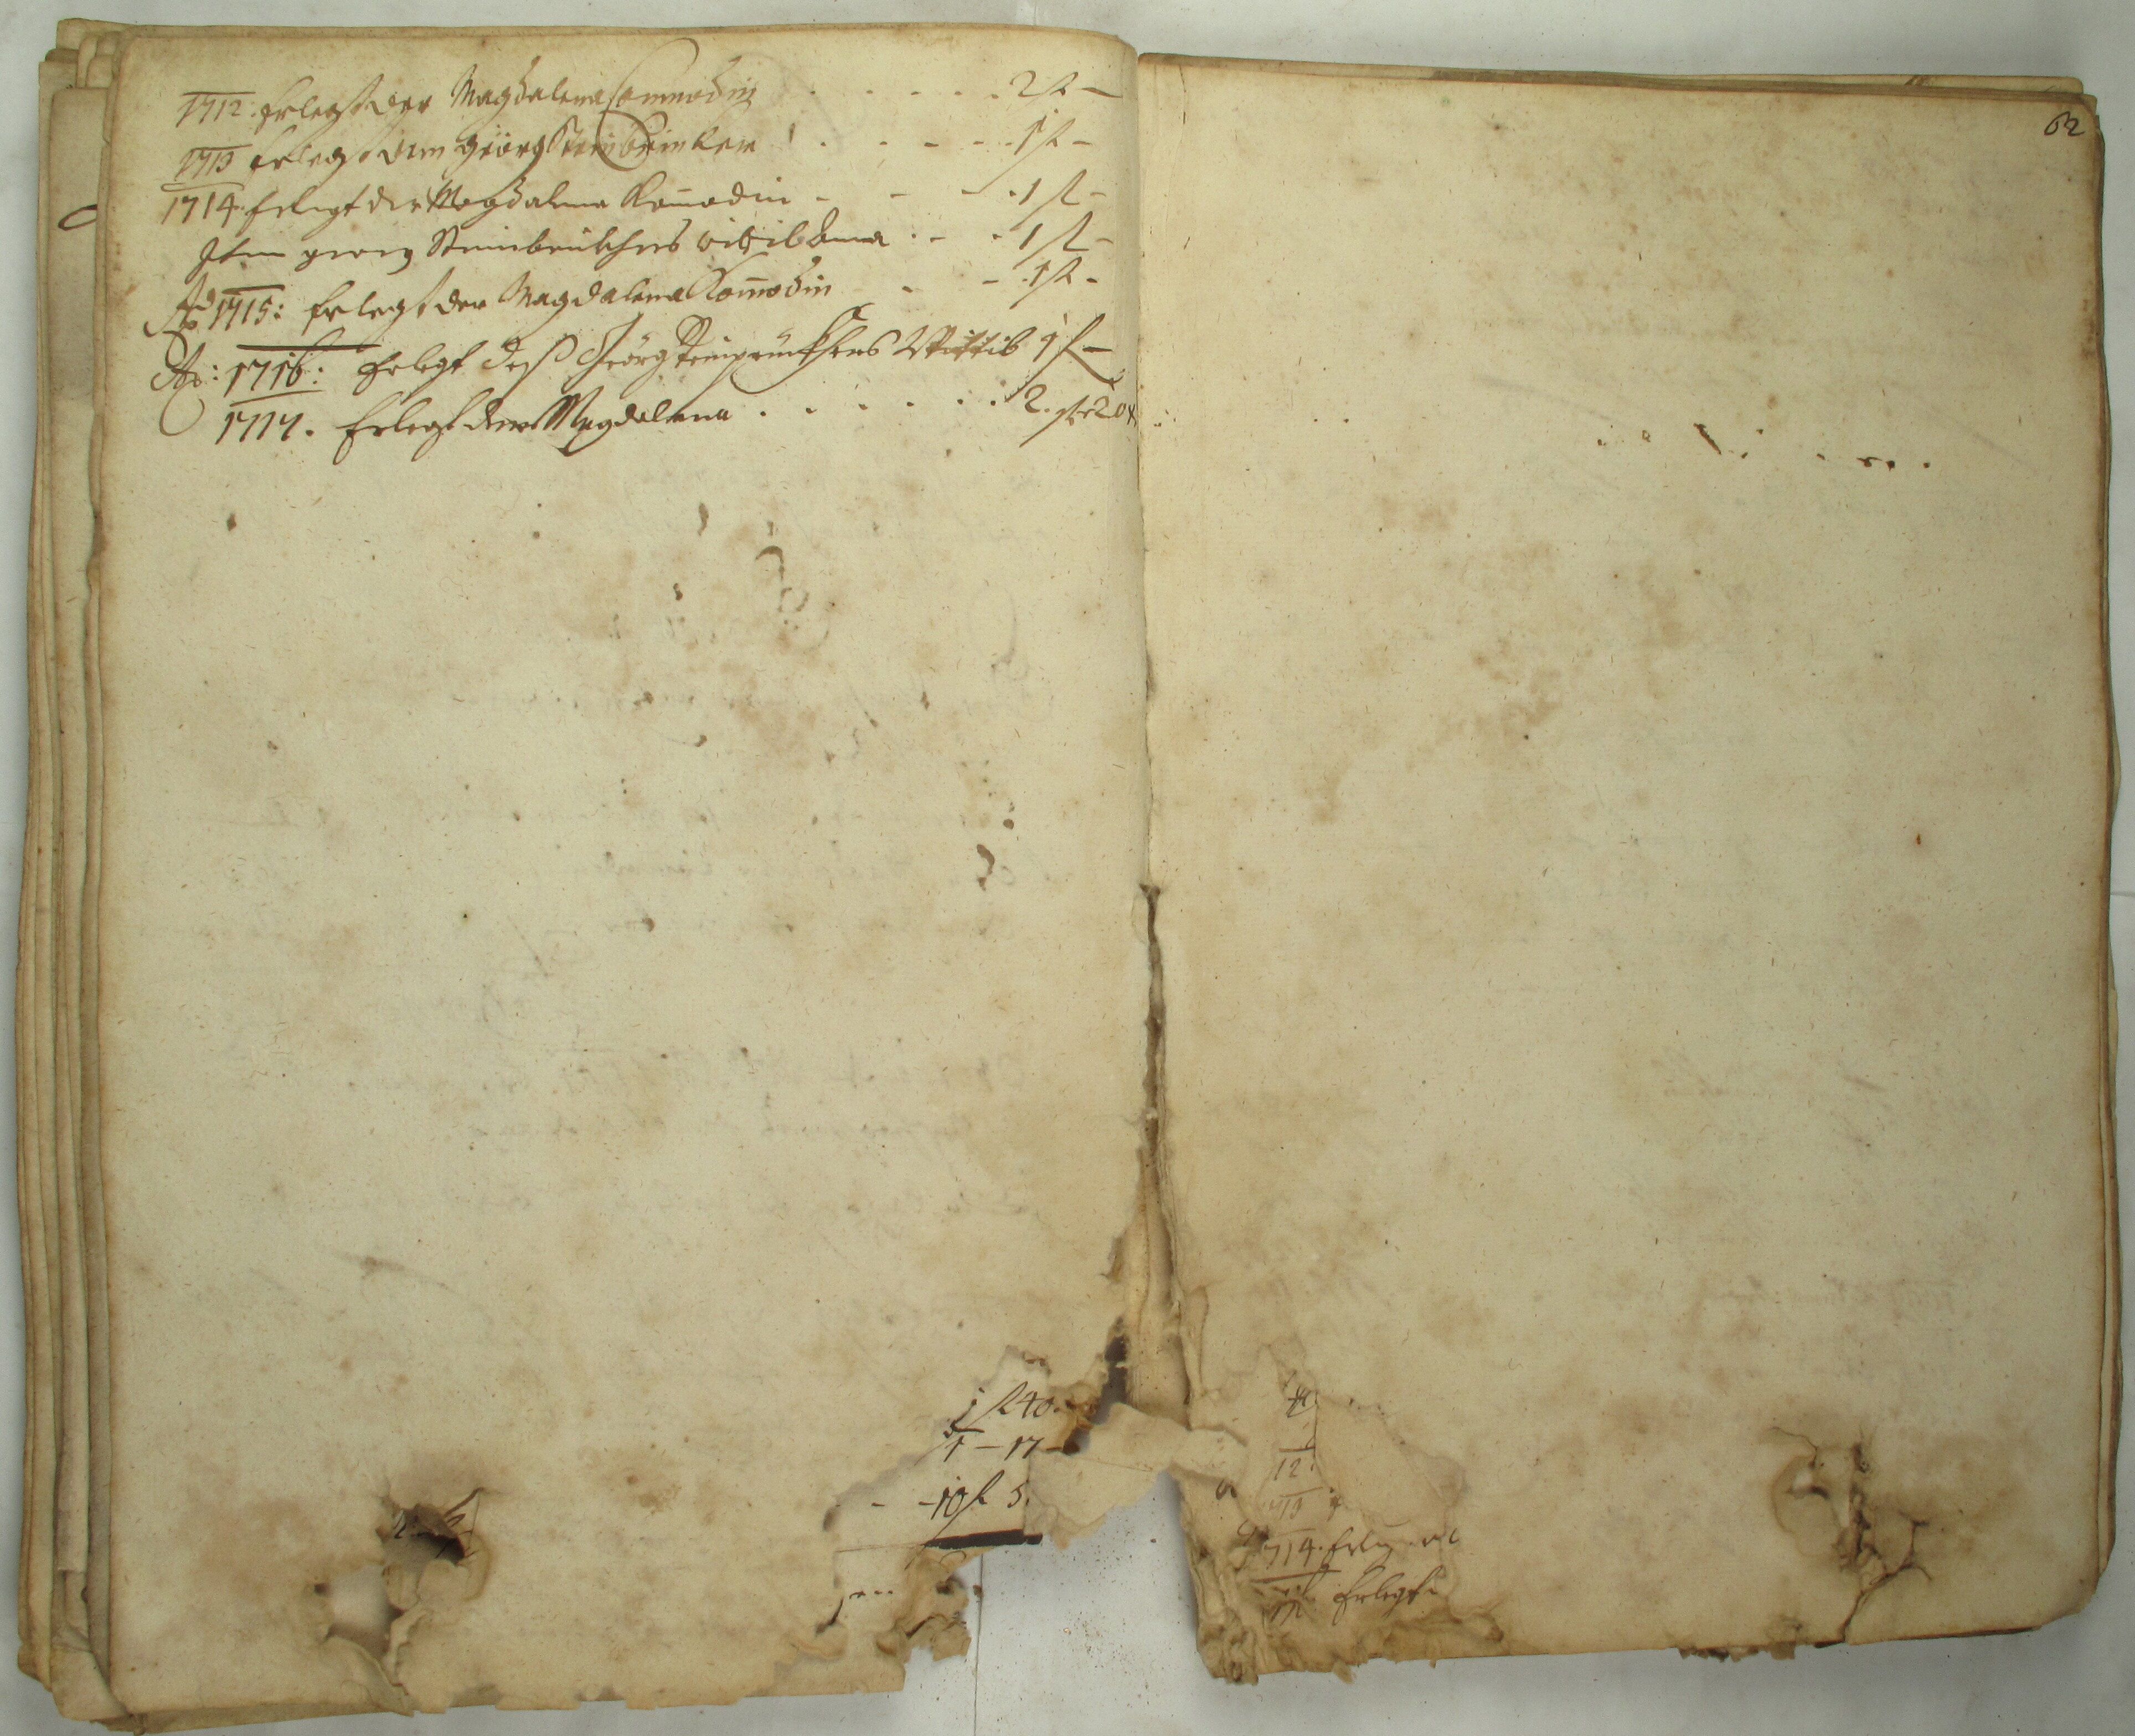 1712. Erlegt der Magdalena Commodin . . . . . 2 fl –
1713 Erlegt dem Geörg Steinbrinken . . . . . 1 fl –
1714. Erlegt der Magdalena Komodin – – – . 1 fl –
Item georg Steinbruckhers . . – . 1 fl –
Ao 1715: Erlegt der Magdalena Comodin – – . 1 fl –
Ao: 1716: Erlegt des Geörg Wittib 1 fl –
1717. Erlegt der Magdalena . . . . . . 2. fl 20 x
62
1 fl 40.
1 – 17 –
– – 10 fl 5.
12.
713
1714. Erleg
Erlegt